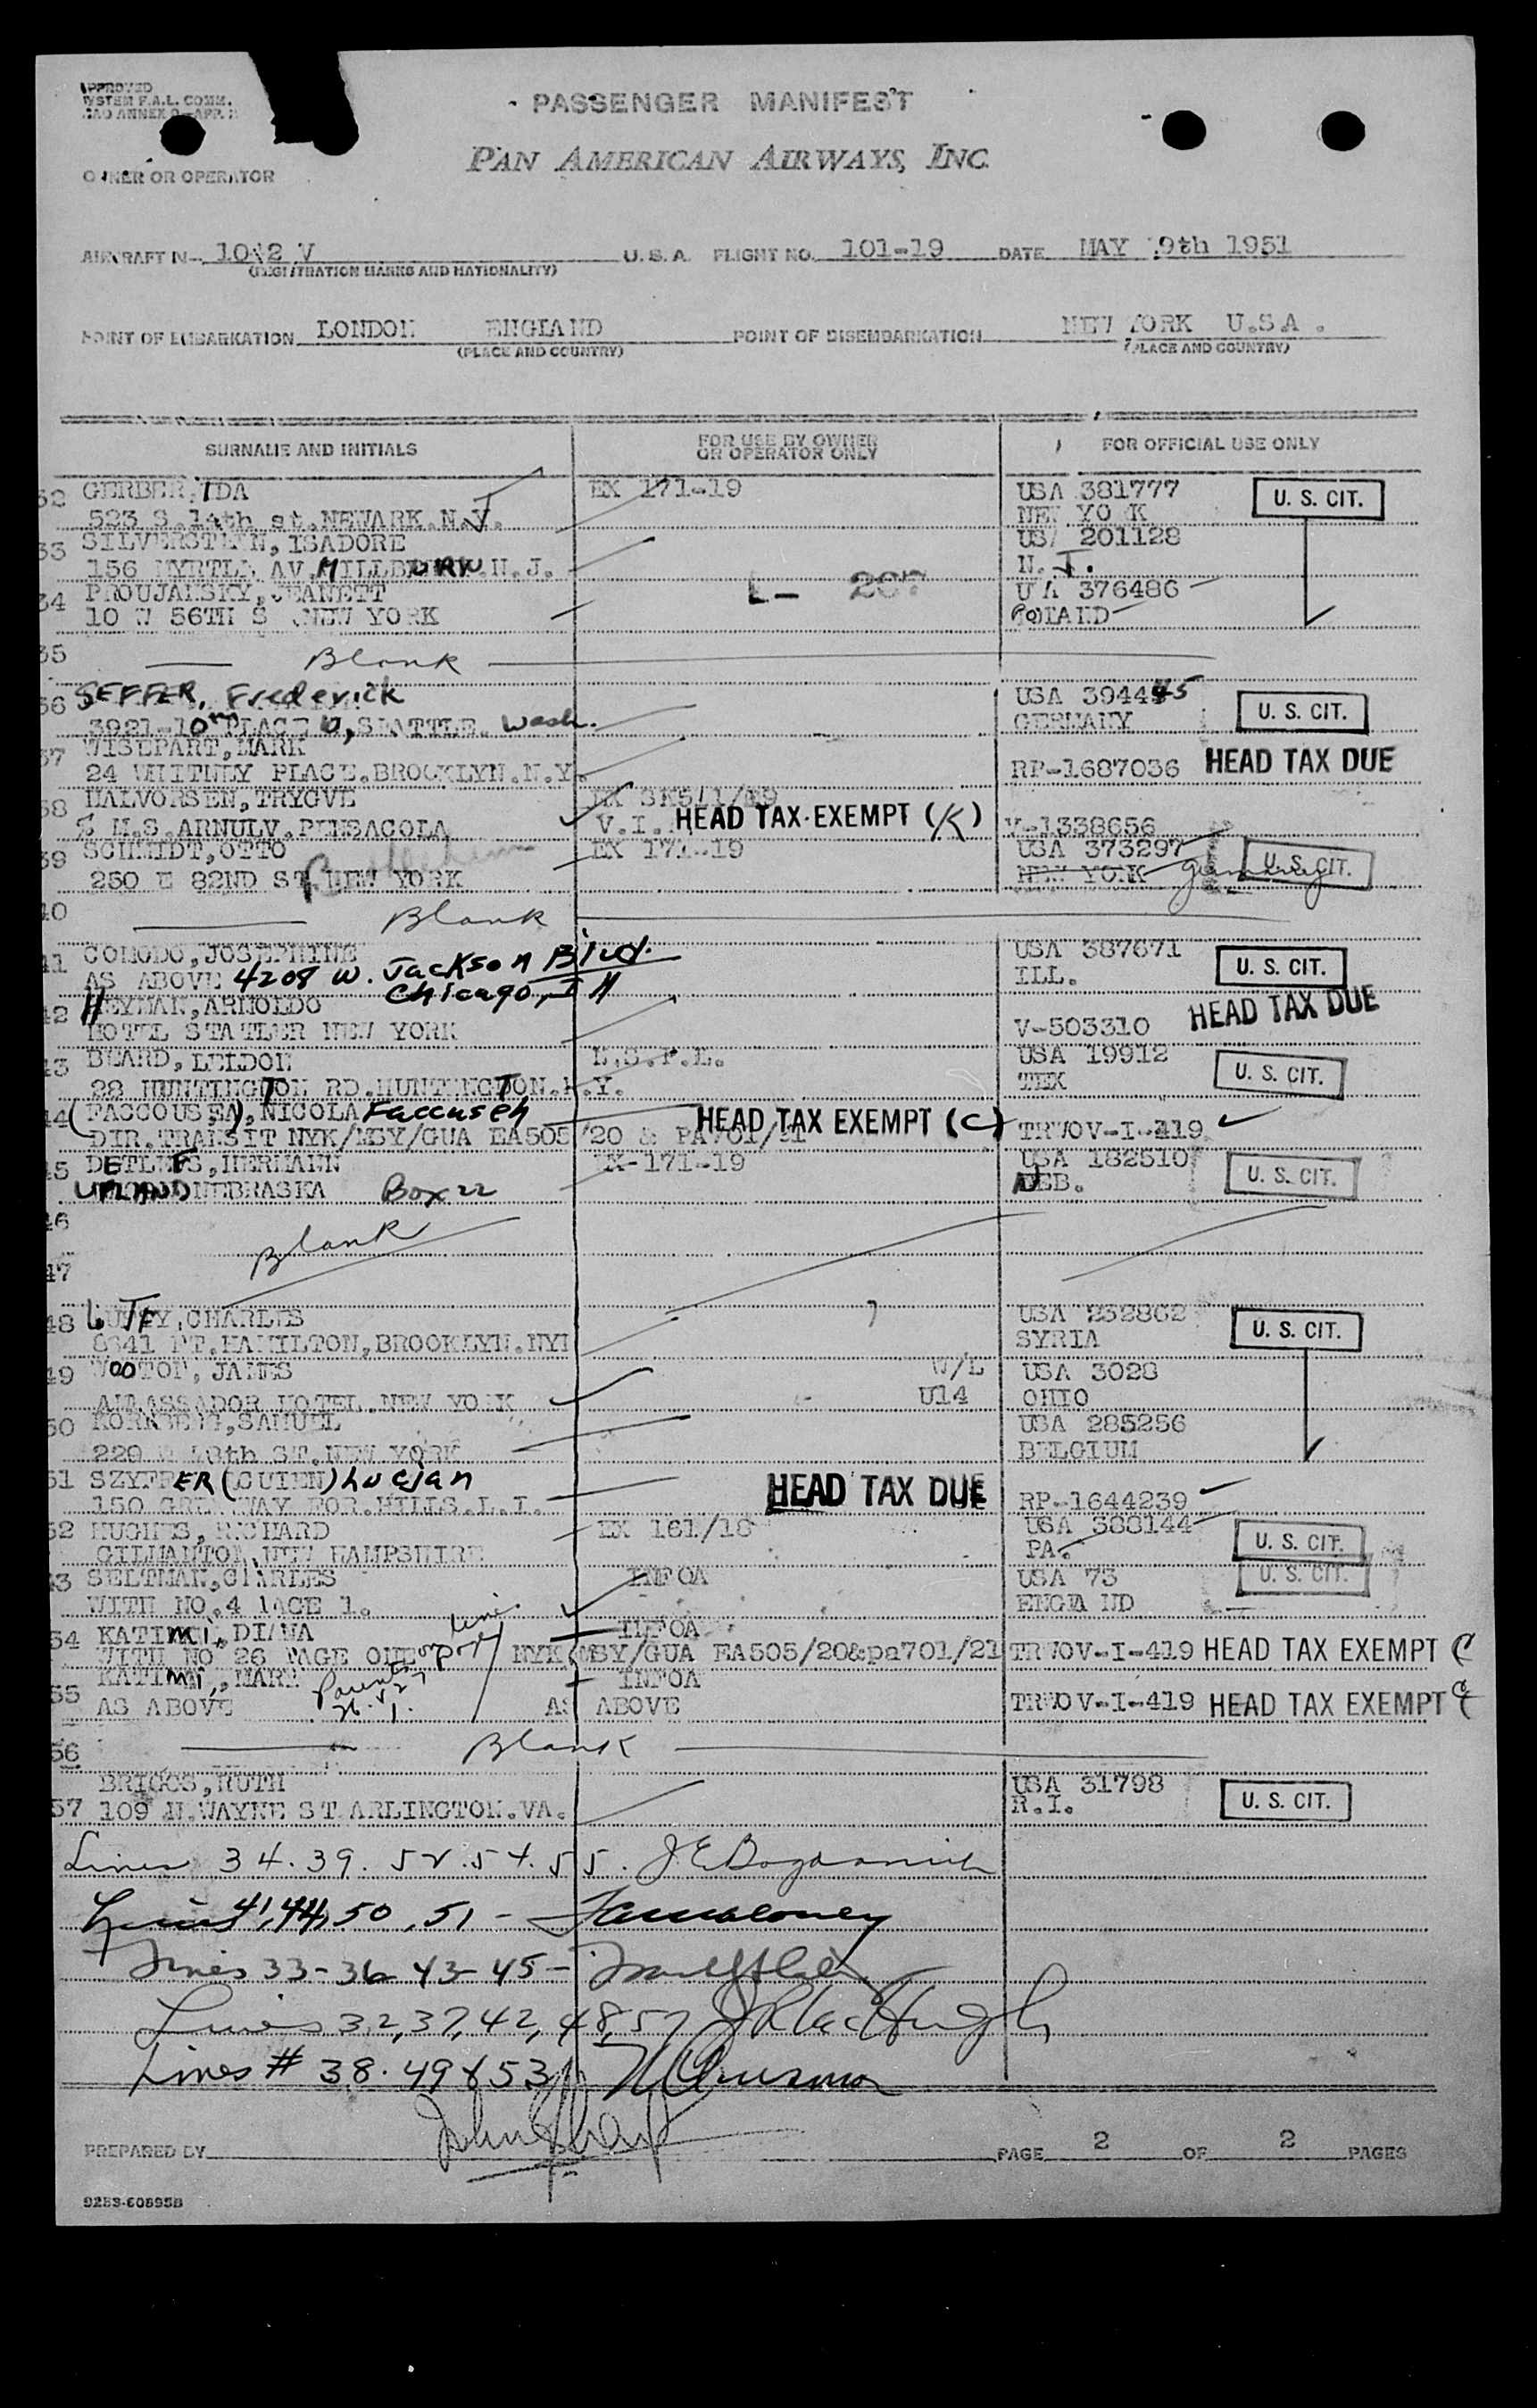 APPROVED
SYSTEM F.A.L. COMM.
PASSENGER MANIFEST
PAN AMERICAN AIRWAYS, INC.
OWNER OR OPERATOR
AIRCRAFT 1042 V U.S.A. FLIGHT NO. 101-19 DATE MAY 19th 1951
(REGISTRATION MARKS AND NATIONALITY)
POINT OF EMBARKATION LONDON ENGLAND POINT OF DISEMBARKATION NEW YORK U.S.A.
(PLACE AND COUNTRY) (PLACE AND COUNTRY)
SURNAME AND INITIALS FOR USE BY OWNER OR OPERATOR ONLY FOR OFFICIAL USE ONLY
32 GERBER, IDA EX 171-19 USA 381777 U. S. CIT.
523 S.14th st.NEWARK.N.J. NEW YORK
33 SILVERSTEIN, ISADORE USA 201128
156 MYRTLE AV.MILLBURN.N.J. N.J.
34 PROUJALSKY, JEANETT L- 207 USA 376486
10 W 56TH S NEW YORK POLAND
35 Blank
36 SEFFER, Frederick USA 394445 U. S. CIT.
3921-10th PLACE SEATTLE. Wash. GERMANY
37 WISEPART, MARK
24 WHITNEY PLACE.BROOKLYN.N.Y. RP-1687036 HEAD TAX DUE
38 HALVORSEN, TRYGVE
% M.S.ARNULV.PENSACOLA V.I. HEAD TAX EXEMPT (K) V-1338656
39 SCHMIDT, OTTO EX 171-19 USA 373297 U.S. CIT.
250 E 82ND ST NEW YORK NEW YORK Germany
40 Blank
41 COMODO, JOSEPHINE USA 387671 U. S. CIT.
AS ABOVE 4208 W. Jackson Blvd. ILL.
Chicago, Ill
42 HEYMAN, ARNOLDO
HOTEL STATLER NEW YORK V-503310 HEAD TAX DUE
43 BEARD, LELDON USA 19912 U. S. CIT.
28 HUNTINGTON RD.HUNTINGTON.N.Y. TEX
44 (FACCOUSEA), NICOLA Faccuseh HEAD TAX EXEMPT (C)
DIR.TRANSIT NYK/MSY/GUA EA505/20 & PA701/21 TRWOV-I-419
45 DETLEFS, HERMANN EX-171-19 USA 182510 U. S. CIT.
UPLAND NEBRASKA Box 22 NEB.
46 Blank
47
48 LUTFY, CHARLES USA 232862 U. S. CIT.
8641 FT.HAMILTON, BROOKLYN.NY SYRIA
49 WOOTON, JAMES W/L USA 3028
AMBASSADOR HOTEL.NEW YORK U14 OHIO
50 SAMUEL USA 285256
ST.NEW YORK BELGIUM
51 SZYFFER (GUIEN) Lucjan HEAD TAX DUE
150 GREENWAY FOR.HILLS.L.I. RP-1644239
52 HUGHES, RICHARD EX 161/18 USA 388144 U. S. CIT.
GILMANTON NEW HAMPSHIRE PA.
53 SELTMAN, CHARLES INFOA USA 73 U. S. CIT.
WITH NO.4 PAGE 1. ENGLAND
54 KATIMI, DIANA INFOA
WITH NO 26 PAGE ONE NYK/MSY/GUA EA505/20&pa701/21 TRWOV-I-419 HEAD TAX EXEMPT C
55 KATIMI, MARY INFOA
AS ABOVE AS ABOVE TRWOV-I-419 HEAD TAX EXEMPT C
56 Blank
BRIGGS, RUTH USA 31798 U. S. CIT.
57 109 N.WAYNE ST.ARLINGTON.VA. R.I.
Lines 34. 39. 52. 54. 55.
Lines 41, 44, 50, 51 -
Lines 33-36 43-45 -
Lines 32, 37, 42, 48, 57
Lines # 38. 49 & 53
PREPARED BY PAGE 2 OF 2 PAGES